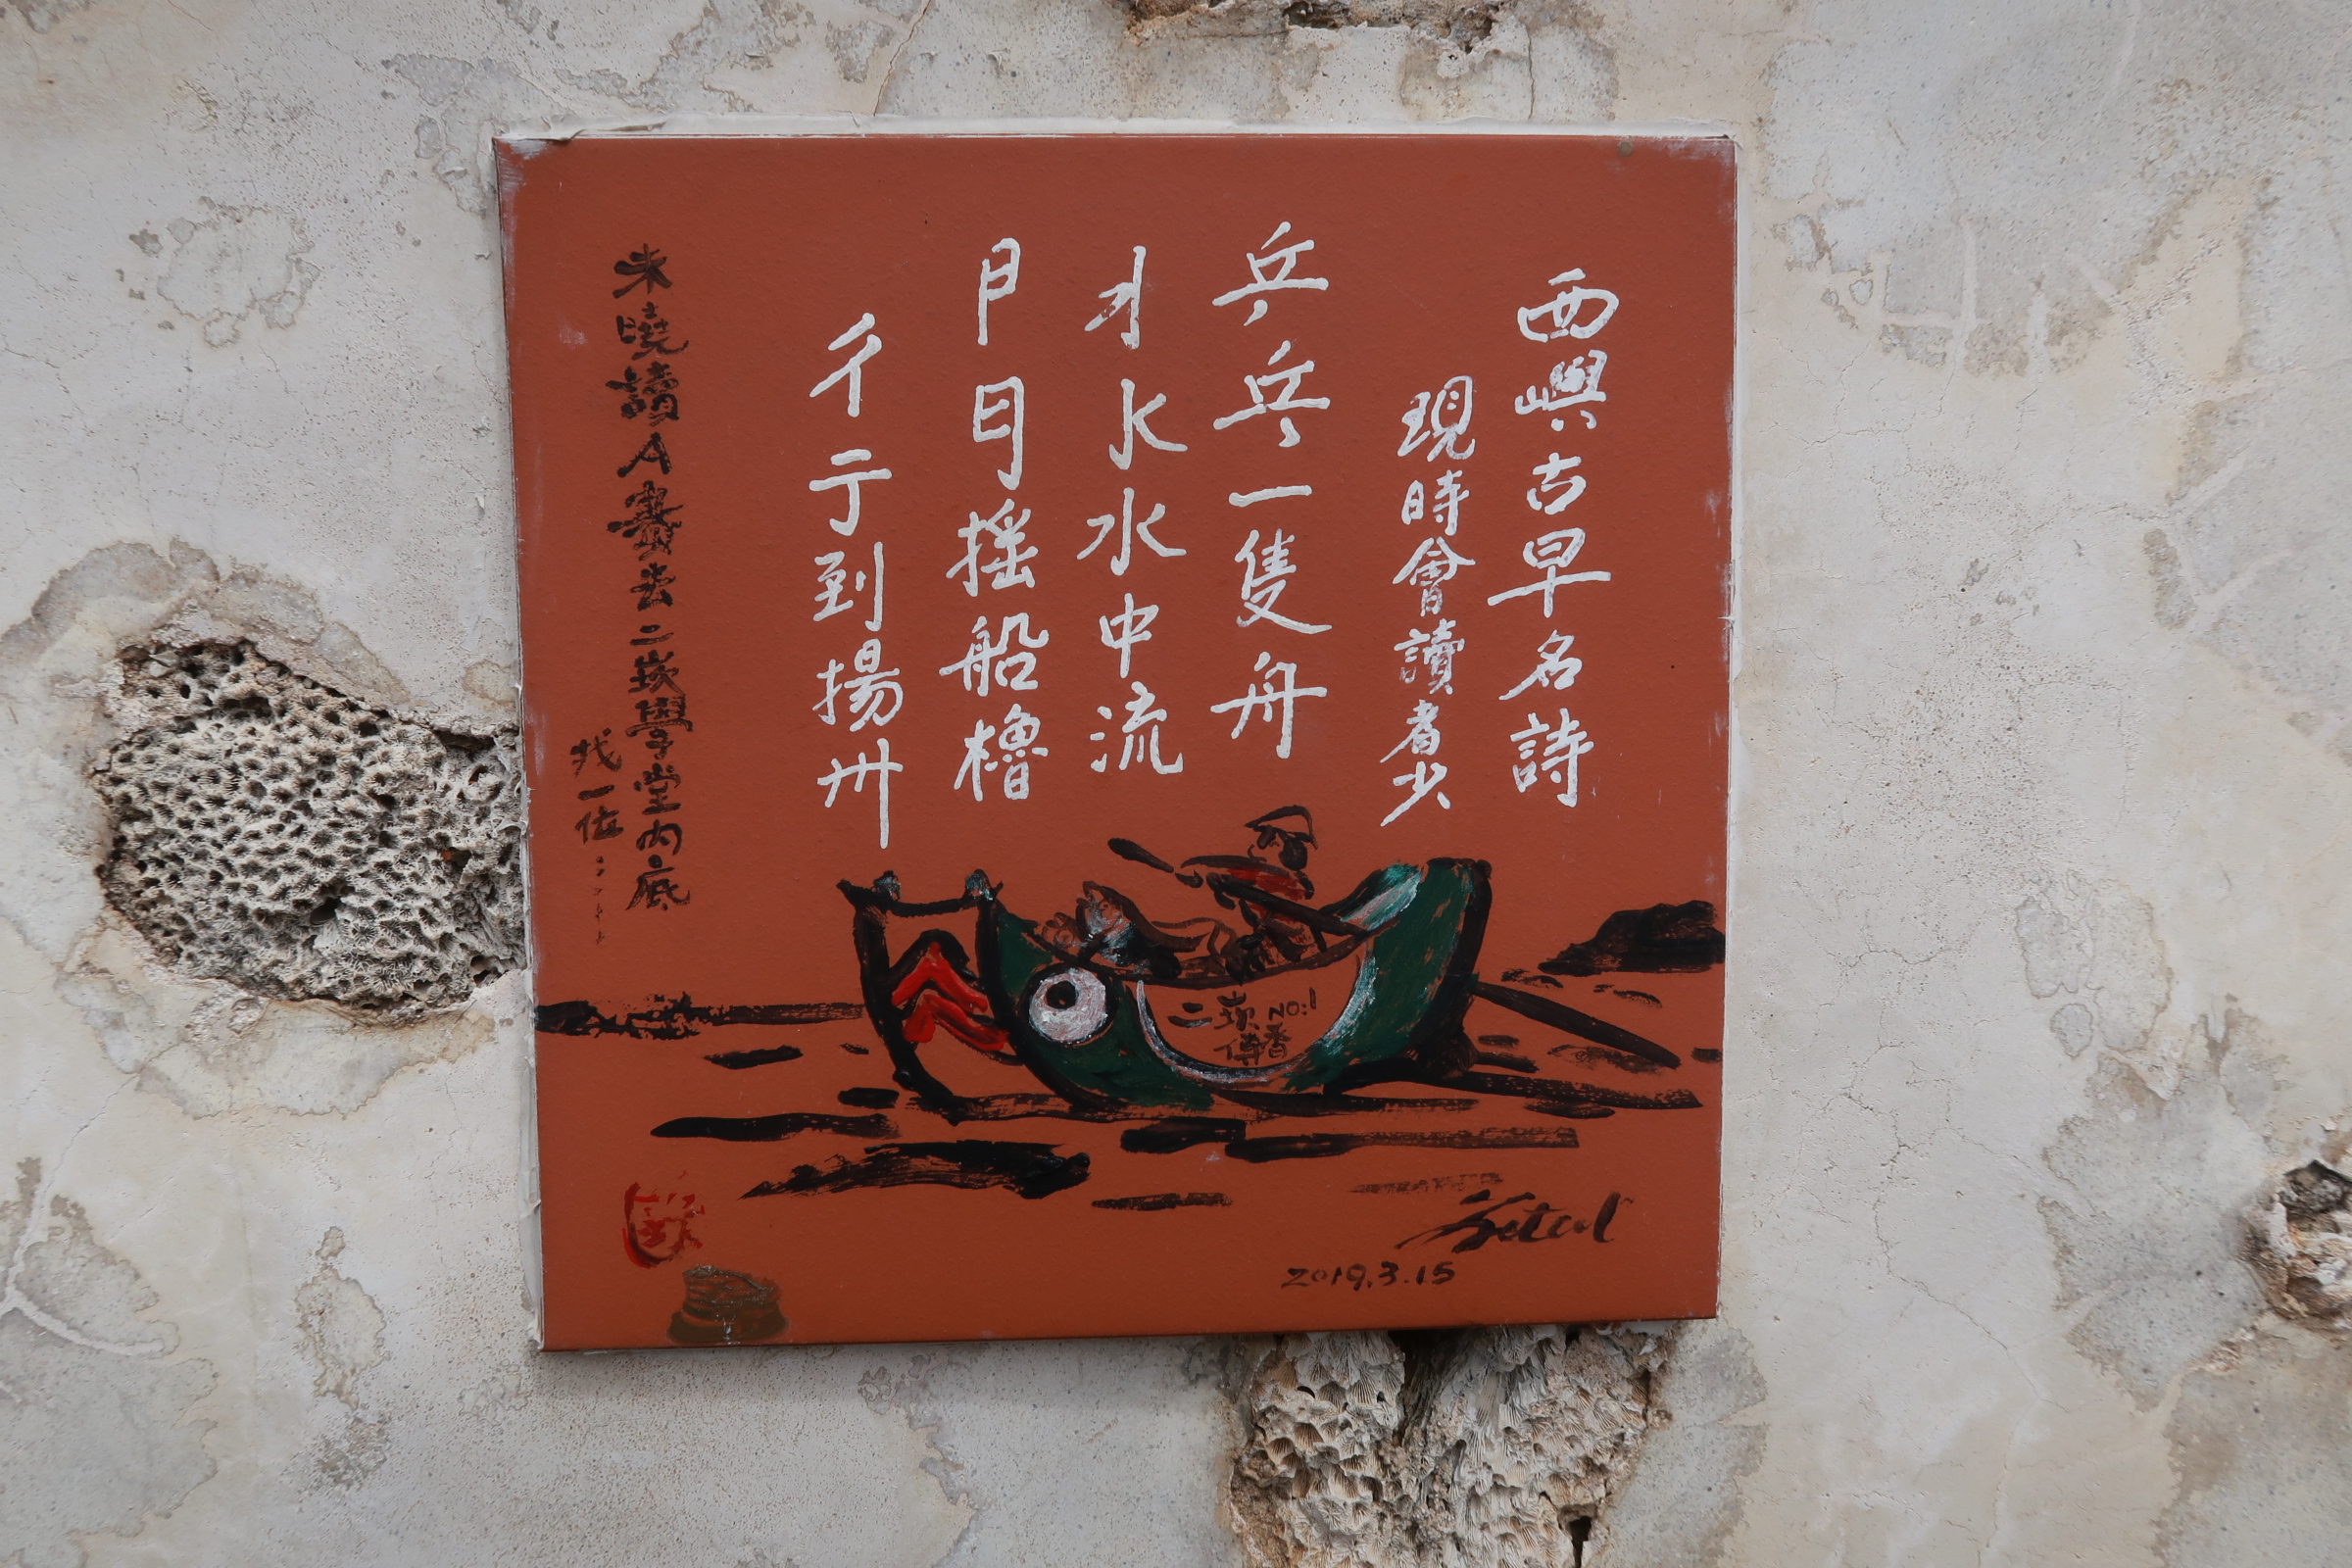 西嶼古早名詩
現時會讀者少
乒乓一隻舟
水中流
𠁣𠃛搖船櫓
彳亍到揚州
未曉讀A去二崁學堂內底
找一位......
二崁 NO:1
傳香
2019.3.15